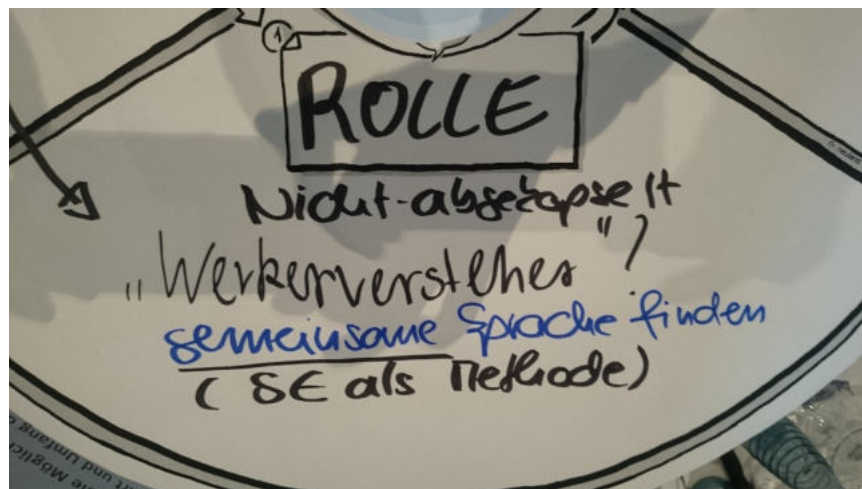 1
ROLLE
Nicht-abgekapselt
„Werkerversteher"?
gemeinsame Sprache finden
(SE als Methode)
Umfang
und
Möglich